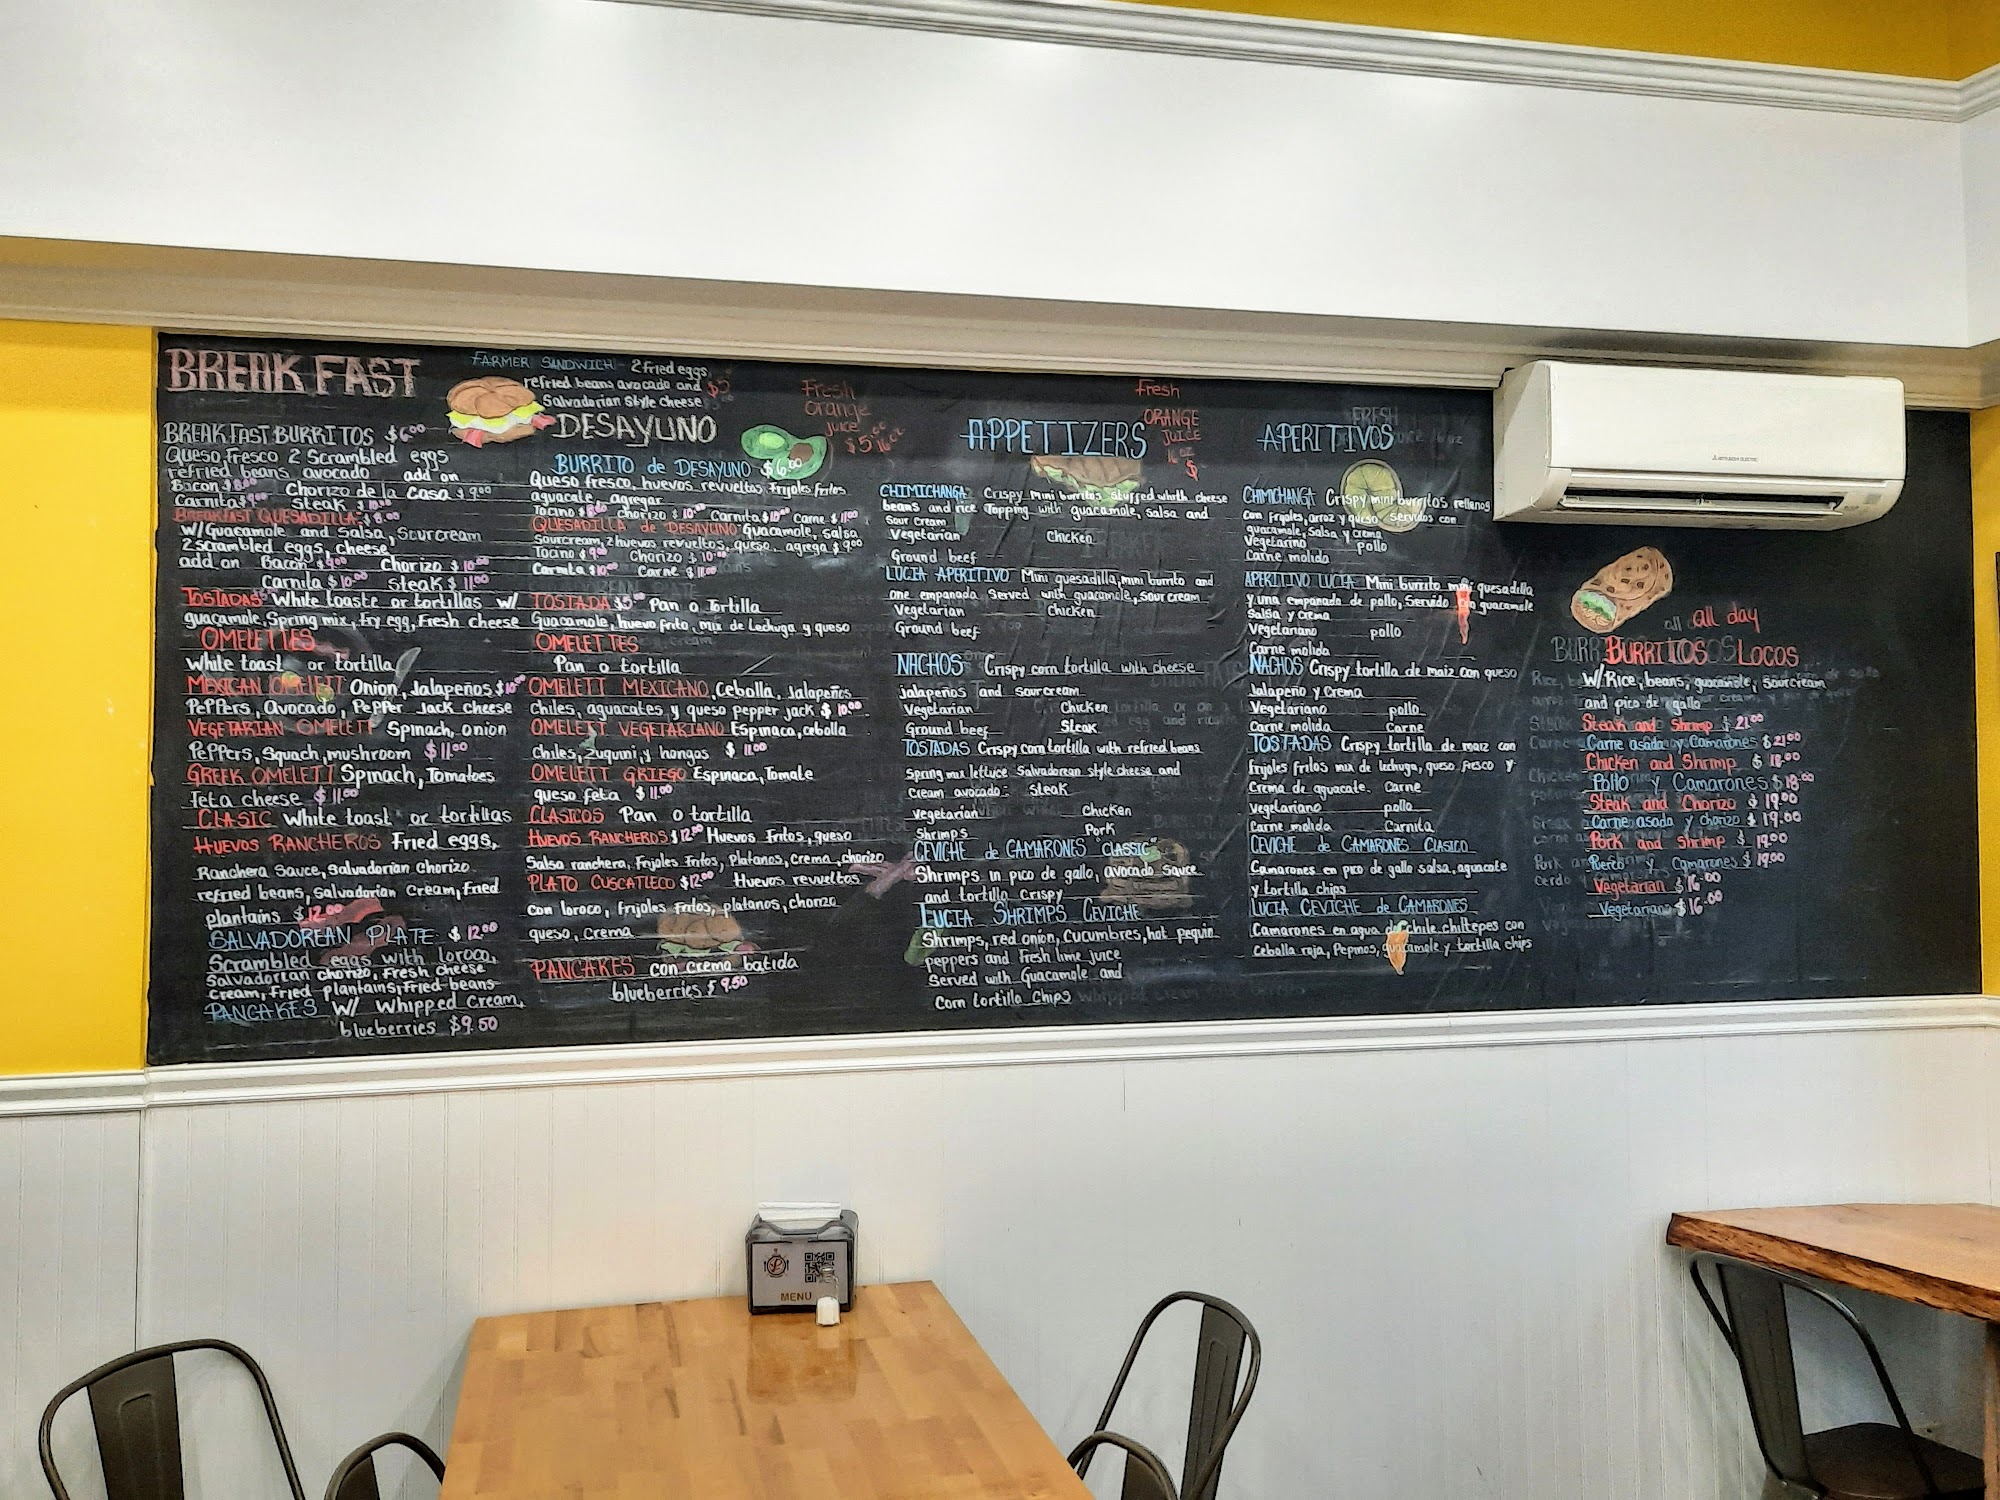 BREAKFAST
FARMER SANDWICH - 2 fried eggs,
refried beans avocado and $5
Salvadorian Style Cheese
BREAKFAST BURRITOS $6.00
Queso fresco 2 Scrambled eggs
refried beans, avocado add on
Bacon $8.00 Chorizo de la Casa $9.00
Carnita $9.00 Steak $10.00
BREAKFAST QUESADILLA $8.00
W/Guacamole and Salsa, Sourcream
2 scrambled eggs, cheese,
add on Bacon $9.00 Chorizo $10.00
Carnita $10.00 Steak $11.00
TOSTADAS White toaste or tortillas w/
guacamole, Spring mix, fry egg, Fresh cheese
OMELETTES
White toast or tortilla
MEXICAN OMELETT Onion, Jalapeños $10.00
Peppers, Avocado, Pepper Jack cheese
VEGETARIAN OMELETT Spinach, onion
Peppers, Squach, mushroom $11.00
GREEK OMELETT Spinach, Tomatoes
feta cheese $11.00
CLASIC White toast or tortillas
HUEVOS RANCHEROS Fried eggs,
Ranchera Sauce, Salvadorian Chorizo
refried beans, Salvadorian Cream, fried
plantains $12.00
SALVADOREAN PLATE $12.00
Scrambled eggs with loroco,
Salvadorian chorizo, Fresh cheese
Cream, Fried plantains, fried beans
PANCAKES W/ Whipped Cream,
blueberries $9.50
DESAYUNO
Fresh
orange
juice
$5.00 16 oz
BURRITO de DESAYUNO $6.00
Queso fresco, huevos revueltos Frijoles fritos
aguacate, agregar
Tocino $8.00 Chorizo $10.00 Carnita $10.00 Carne $11.00
QUESADILLA de DESAYUNO Guacamole, Salsa
Sourcream, 2 huevos revueltos, queso, agrega $9.00
Tocino $9.00 Chorizo $10.00
Carnita $10.00 Carne $11.00
TOSTADA $5.00 Pan o Tortilla
Guacamole, huevo frito, mix de Lechuga y queso
OMELETTES
Pan o tortilla
OMELETT MEXICANO, Cebolla, Jalapeños
Chiles, aguacates y queso pepper jack $10.00
OMELETT VEGETARIANO Espinaca, cebolla
chiles, Zuquini y hongos $11.00
OMELETT GRIEGO Espinaca, Tomate
queso feta $11.00
CLASICOS Pan o tortilla
HUEVOS RANCHEROS $12.00 Huevos Fritos, queso
Salsa ranchera, Frijoles Fritos, Platanos, Crema, chorizo
PLATO CUSCATLECO $12.00 Huevos revueltos
con loroco, frijoles Fritos, platanos, chorizo
queso, crema
PANCAKES con crema batida
blueberries $9.50
APPETIZERS
Fresh
ORANGE
JUICE
16 oz
$
CHIMICHANGA Crispy mini burritos stuffed whith cheese
beans and rice Topping with guacamole, salsa and
sour cream
Vegetarian Chicken
Ground beef
LUCIA APERITIVO Mini quesadilla, mini burrito and
one empanada Served with guacamole, sour cream
Vegetarian Chicken
Ground beef
NACHOS Crispy corn tortilla with cheese
jalapeños and sourcream
Vegetarian Chicken
Ground beef Steak
TOSTADAS Crispy corn tortilla with refried beans
spring mix lettuce Salvadorean style cheese and
Cream avocado: steak
Vegetarian Chicken
Shrimps Pork
CEVICHE de CAMARONES "CLASSIC"
Shrimps in pico de gallo, avocado sauce
and tortilla Crispy
LUCIA SHRIMPS CEVICHE
Shrimps, red onion, Cucumbres, hot pequin
peppers and Fresh lime juice
Served with Guacamole and
Corn tortilla chips
APERITIVOS
FRESH
CHIMICHANGA Crispy mini burritos rellenos
Con frijoles, arroz y queso servidos con
guacamole, Salsa y crema
Vegetarino pollo
Carne molida
APERITIVO LUCIA Mini burrito mini quesadilla
y una empanada de pollo, Servido con guacamole
Salsa y crema
Vegetariano pollo
Carne molida
NACHOS Crispy tortilla de maiz con queso
Jalapeño y Crema
Vegetariano pollo
Carne molida Carne
TOSTADAS Crispy tortilla de maiz con
frijoles fritos mix de lechuga, queso fresco y
Crema de aguacate. Carne
Vegetariano pollo
Carne molida Carnita
CEVICHE de CAMARONES CLASICO
Camarones en pico de gallo salsa, aguacate
y tortilla chips
LUCIA CEVICHE de CAMARONES
Camarones en agua de chile chiltepes con
Cebolla roja, Pepinos, guacamole y tortilla chips
MITSUBISHI ELECTRIC
all day
BURRITOS LOCOS
W/Rice, beans, guacamole, sourcream
and pico de gallo
Steak and Shrimp $21.00
Carne asada y Camarones $21.00
Chicken and Shrimp $18.00
Pollo y Camarones $18.00
Steak and Chorizo $19.00
Carne asada y chorizo $19.00
Pork and Shrimp $19.00
Puerco y Camarones $19.00
Vegetarian $16.00
Vegetariano $16.00
MENU